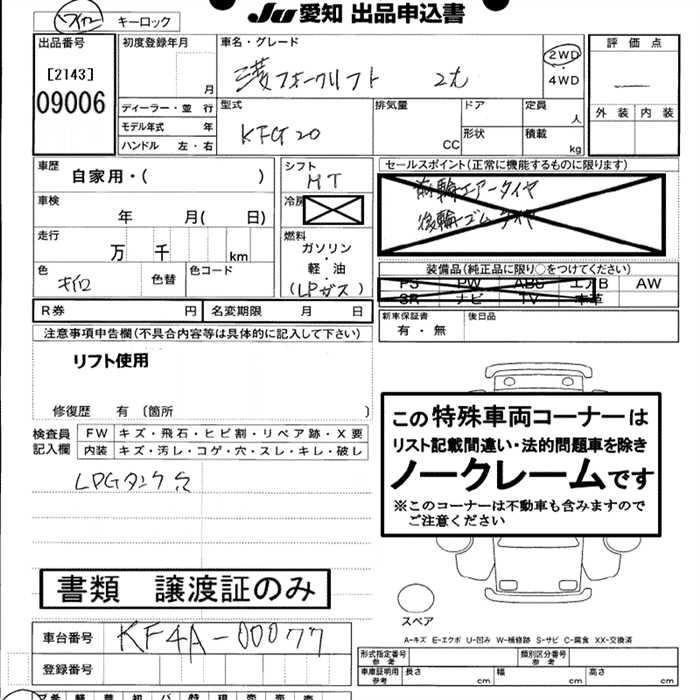 JU愛知 出品申込書
キーロック
出品番号
[2143]
09006
初度登録年月
月
車名・グレード
三菱フォークリフト 2t
2WD
・
4WD
評価点
外装 内装
ディーラー・並行
モデル年式 年
ハンドル 左・右
型式
KFG20
排気量
CC
ドア
形状
定員
人
積載
kg
車歴
自家用・( )
車検
年 月( 日)
走行
万 千 km
色
色替
色コード
シフト
MT
冷房
燃料
ガソリン
・
軽油
(LPガス)
セールスポイント(正常に機能するものに限ります)
前輪エアータイヤ
後輪ゴムタイヤ
装備品(純正品に限り○をつけてください)
PS PW ABS エアB AW
SR ナビ TV 本革
R券 円 名変期限 月 日
新車保証書
有・無
後日品
注意事項申告欄(不具合内容等は具体的に記入して下さい)
リフト使用
修復歴 有(箇所 )
検査員
記入欄
FW キズ・飛石・ヒビ割・リペア跡・X要
内装 キズ・汚レ・コゲ・穴・スレ・キレ・破レ
LPGタンク
この特殊車両コーナーは
リスト記載間違い・法的問題車を除き
ノークレームです
※このコーナーは不動車も含みますので
ご注意ください
書類 譲渡証のみ
スペア
A-キズ E-エクボ U-凹み W-補修跡 S-サビ C-腐食 XX-交換済
車台番号 KF4A-00077
登録番号
形式指定番号
参考
類別区分番号
参考
車庫証明用
参考
長さ cm 幅 cm 高さ cm